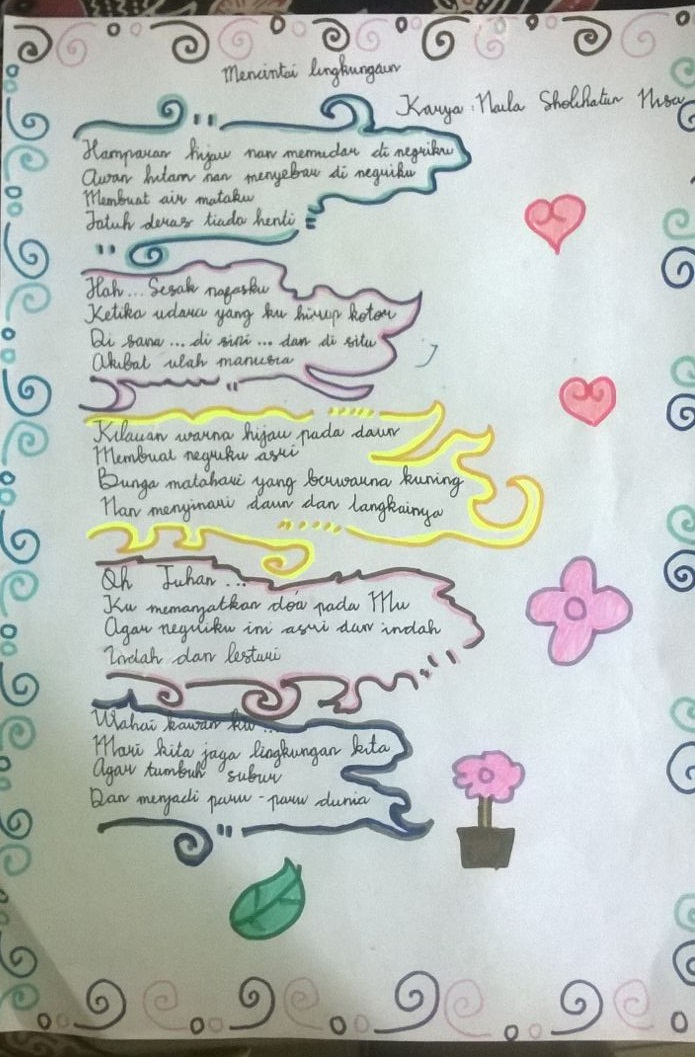 Mencintai lingkungan
Karya : Naila Sholihatun Nisa
Hamparan hijau nan memudar di negriku
Awan hitam nan menyebar di negriku
Membuat air mataku
Jatuh deras tiada henti
Hah... Sesak nafasku
Ketika udara yang ku hirup kotor
Di sana ... di sini ... dan di situ
Akibat ulah manusia
Kilauan warna hijau pada daun
Membuat negriku asri
Bunga matahari yang berwarna kuning
Nan menyinari daun dan tangkainya
Oh Tuhan ...
Ku memanjatkan do'a pada Mu
Agar negriku ini asri dan indah
Indah dan lestari
Wahai kawan ku ...
Mari kita jaga lingkungan kita
Agar tumbuh subur
Dan menjadi paru - paru dunia